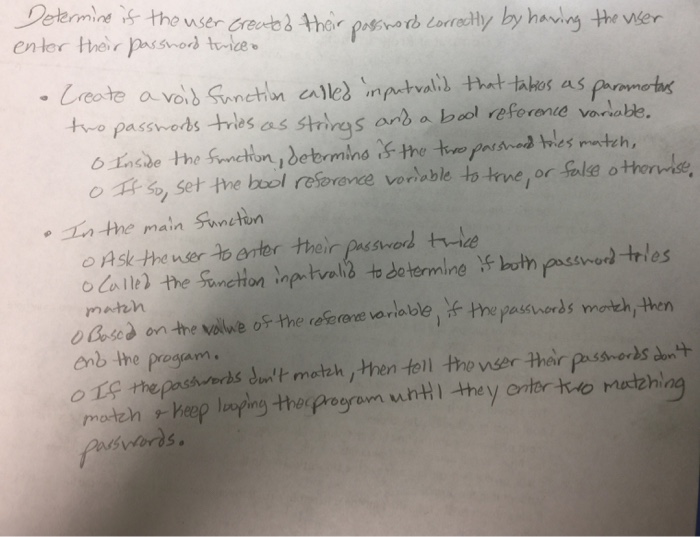 Determine if the user created their password correctly by having the user
enter their password twice.
• Create a void function called inputvalid that takes as parameters
two passwords tries as strings and a bool reference variable.
o Inside the function, determine if the two password tries match,
o If so, set the bool reference variable to true, or false otherwise.
• In the main function
o Ask the user to enter their password twice
o Called the function inputvalid to determine if both password tries
match
o Based on the value of the reference variable, if the passwords match, then
end the program.
o If the passwords don't match, then tell the user their passwords don't
match & keep looping the program until they enter two matching
passwords.